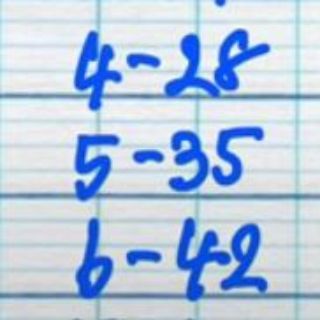 4-28
5-35
6-42